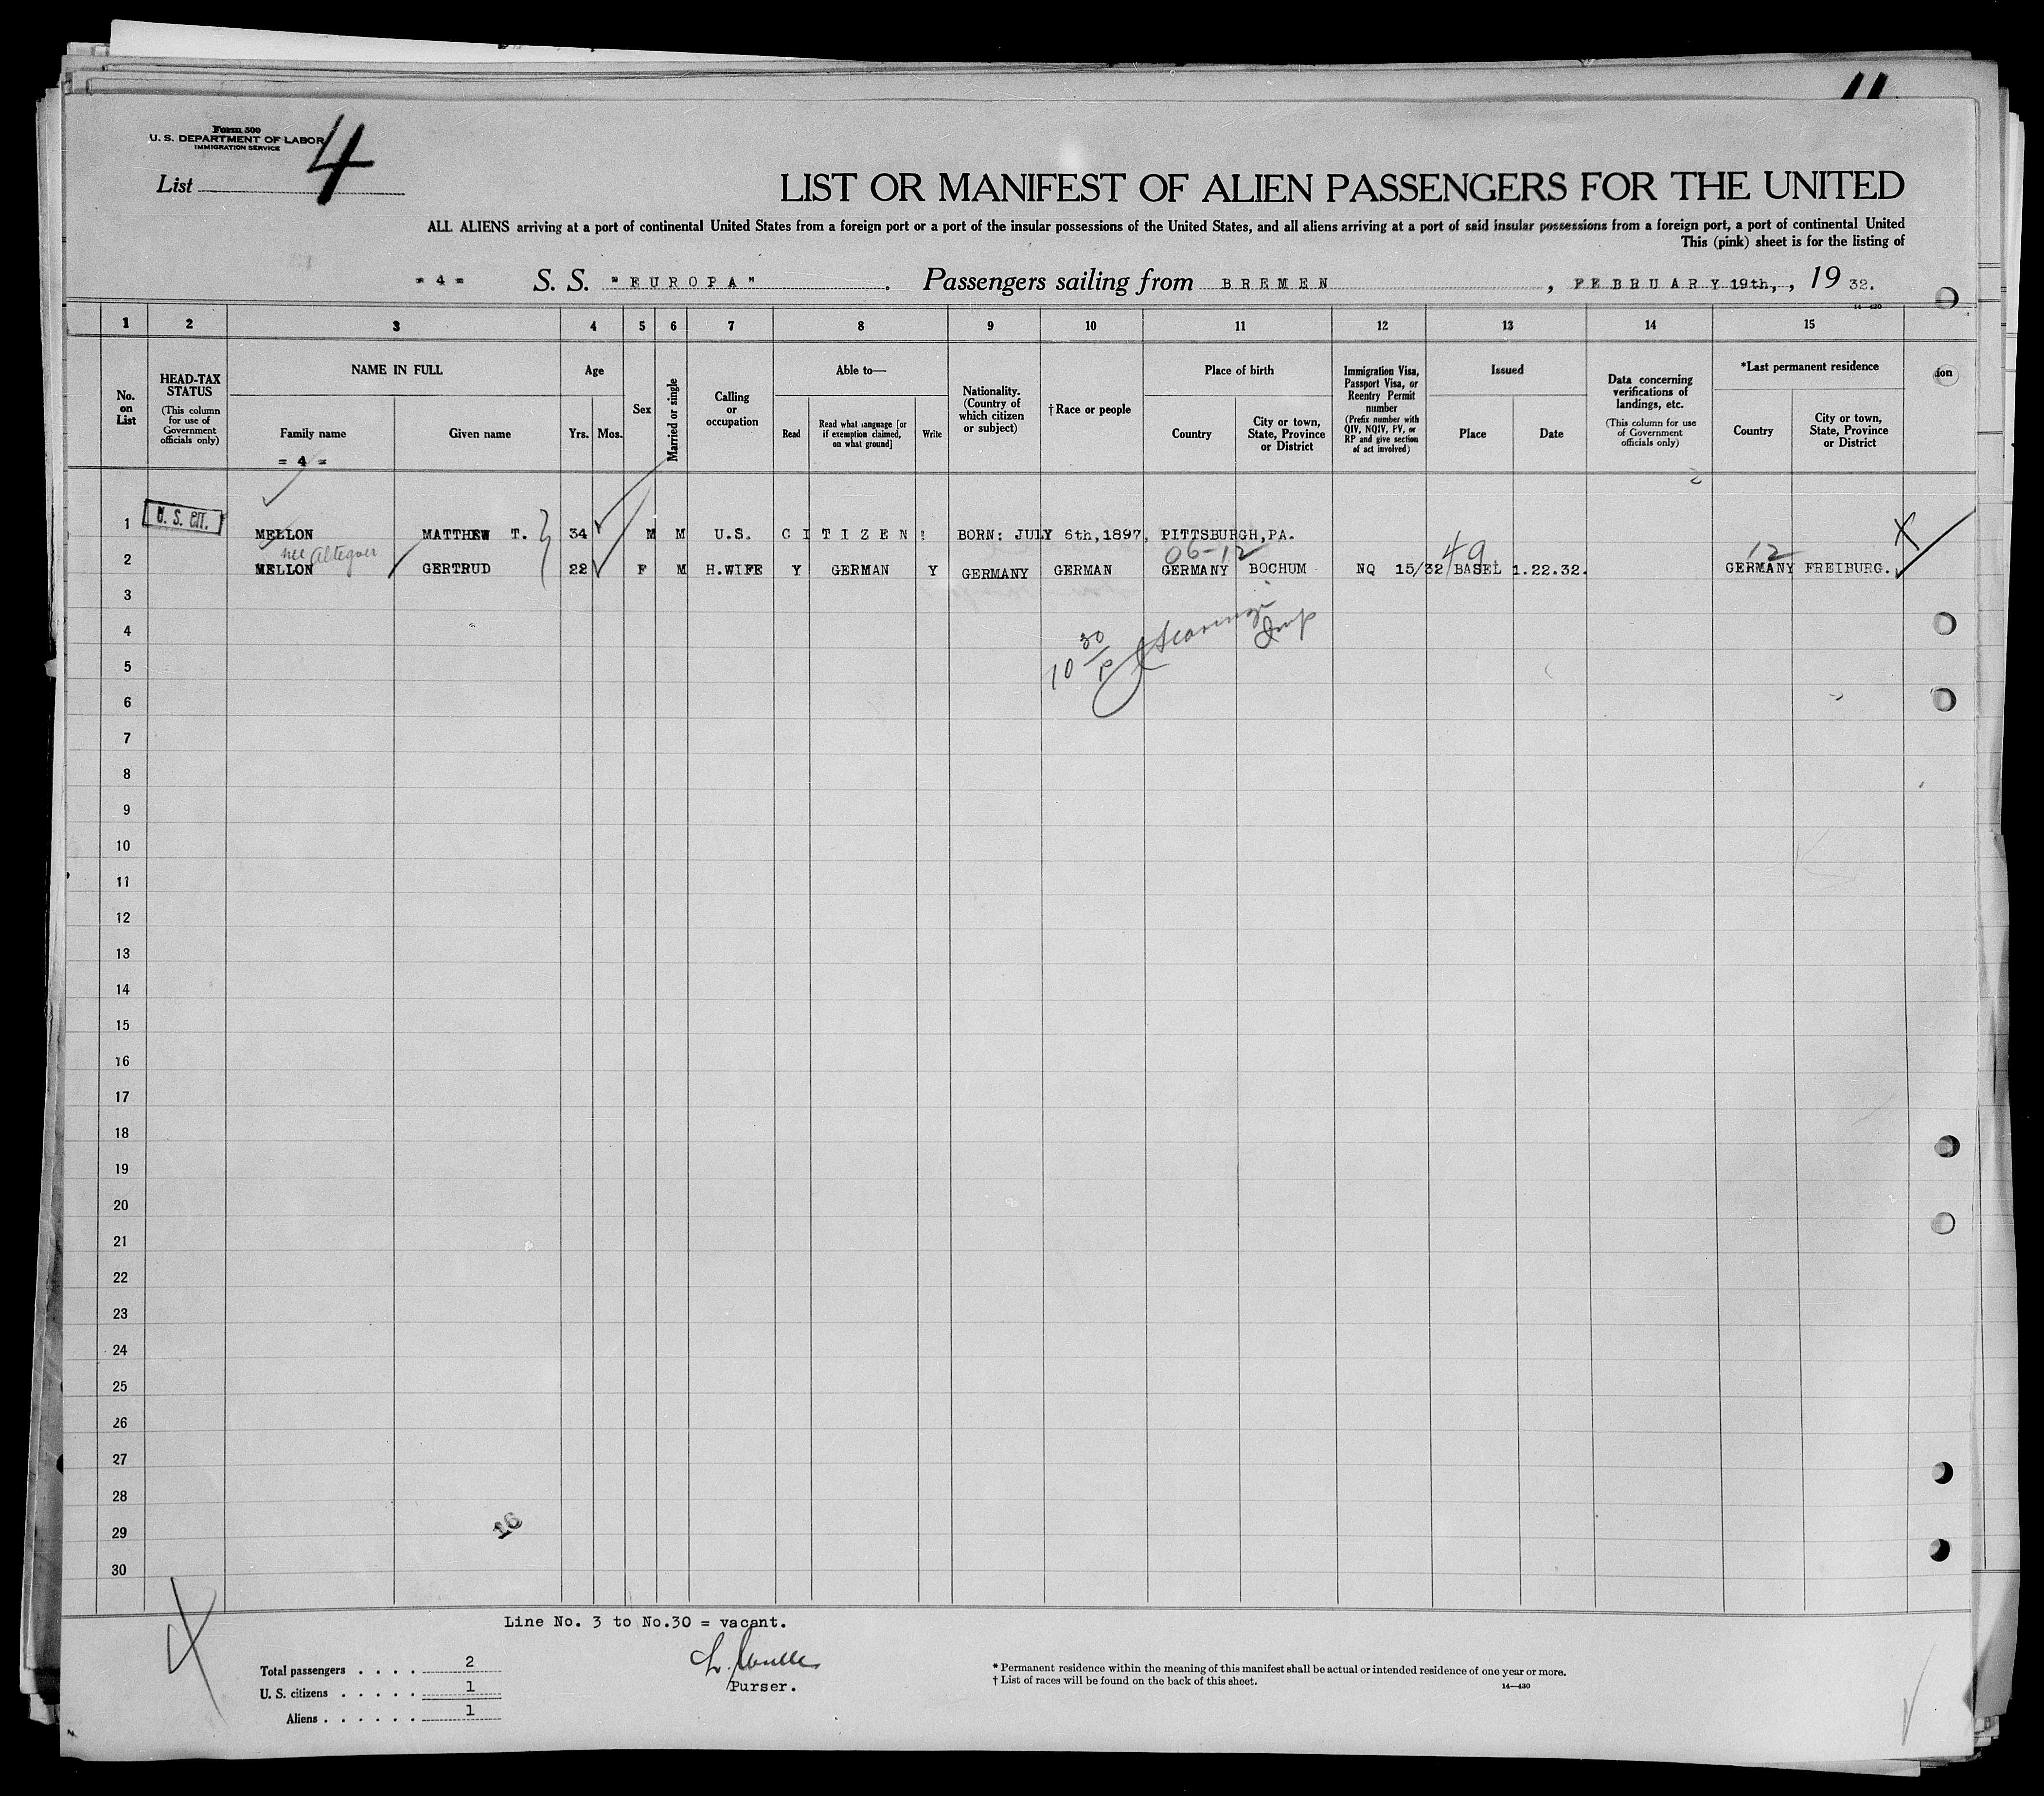 11
Form 500
U. S. DEPARTMENT OF LABOR
IMMIGRATION SERVICE
List 4
LIST OR MANIFEST OF ALIEN PASSENGERS FOR THE UNITED
ALL ALIENS arriving at a port of continental United States from a foreign port or a port of the insular possessions of the United States, and all aliens arriving at a port of said insular possessions from a foreign port, a port of continental United
This (pink) sheet is for the listing of
= 4 = S. S. "EUROPA". Passengers sailing from BREMEN, FEBRUARY 19th,, 19 32.
14-430
1 2 3 4 5 6 7 8 9 10 11 12 13 14 15
No. on List
HEAD-TAX STATUS (This column for use of Government officials only)
NAME IN FULL
Family name
Given name
Age
Yrs. Mos.
Sex
Married or single
Calling or occupation
Able to—
Read
Read what language [or if exemption claimed, on what ground]
Write
Nationality. (Country of which citizen or subject)
†Race or people
Place of birth
Country
City or town, State, Province or District
Immigration Visa, Passport Visa, or Reentry Permit number (Prefix number with QIV, NQIV, PV, or RP and give section of act involved)
Issued
Place
Date
Data concerning verifications of landings, etc. (This column for use of Government officials only)
*Last permanent residence
Country
City or town, State, Province or District
ion
= 4 =
1 U. S. CIT. MELLON MATTHEW T. 34 M M U.S. CITIZEN! BORN: JULY 6th,1897, PITTSBURGH,PA. X
nee Altegoer 06-12 49 12
2 MELLON GERTRUD 22 F M H.WIFE Y GERMAN Y GERMANY GERMAN GERMANY BOCHUM NQ 15/32 BASEL 1.22.32. GERMANY FREIBURG.
3
4
10 30/P Insp
5
6
7
8
9
10
11
12
13
14
15
16
17
18
19
20
21
22
23
24
25
26
27
28
29 16
30
Line No. 3 to No.30 = vacant.
Total passengers . . . . 2
U. S. citizens . . . . . 1
Aliens . . . . . . 1
Purser.
* Permanent residence within the meaning of this manifest shall be actual or intended residence of one year or more.
† List of races will be found on the back of this sheet.
14—430